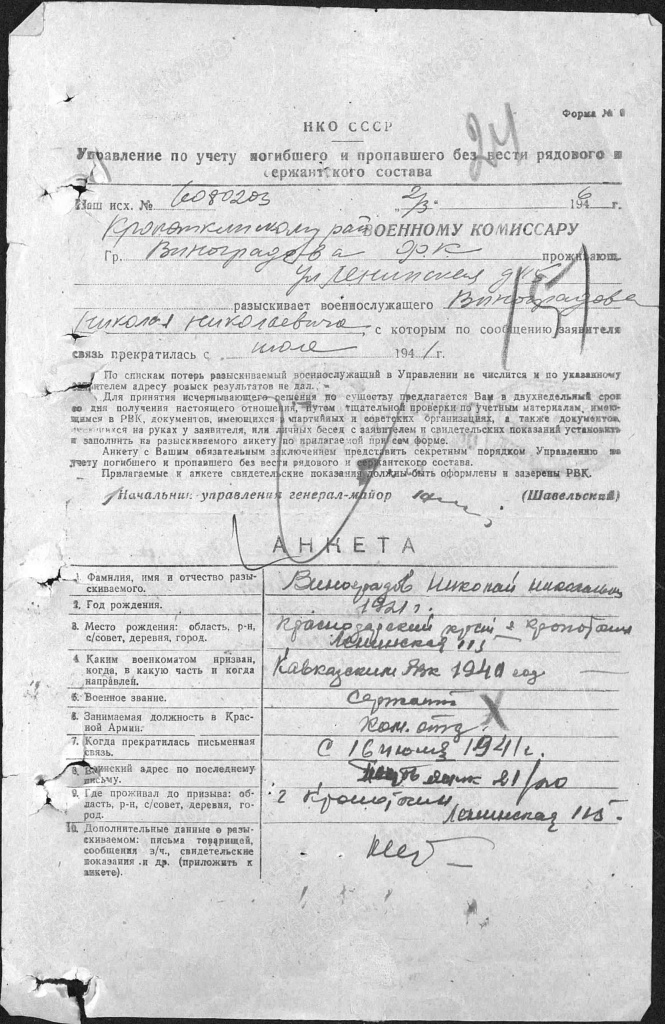 Форма №
24
НКО СССР
Управление по учету погибшего и пропавшего без вести рядового и
сержантского состава
Наш исх. № 6080203 2/3 1946 г.
Кропоткинскому рай ВОЕННОМУ КОМИССАРУ
Гр. Виноградова проживающ.
ул Ленинская
разыскивает военнослужащего Виноградова
Николая Николаевича, с которым по сообщению заявителя
связь прекратилась с июля 1941 г.
По спискам потерь разыскиваемый военнослужащий в Управлении не числится и по указанному
заявителем адресу розыск результатов не дал.
Для принятия исчерпывающего решения по существу предлагается Вам в двухнедельный срок
со дня получения настоящего отношения, путем тщательной проверки по учетным материалам, имею-
щимся в РВК, документов, имеющихся в партийных и советских организациях, а также документов,
имеющихся на руках у заявителя, или личных бесед с заявителем и свидетельских показаний установить
и заполнить на разыскиваемого анкету по прилагаемой при сем форме.
Анкету с Вашим обязательным заключением представить секретным порядком Управлению по
учету погибшего и пропавшего без вести рядового и сержантского состава.
Прилагаемые к анкете свидетельские показания должны быть оформлены и заверены РВК.
Начальник управления генерал-майор (Шавельский)
АНКЕТА
1. Фамилия, имя и отчество разы-
скиваемого.
Виноградов Николай Николаевич
2. Год рождения.
1921 г.
3. Место рождения: область, р-н,
с/совет, деревня, город.
Краснодарский край г Кропоткин
Ленинская 115
4. Каким военкоматом призван,
когда, в какую часть и когда
направлен.
Кавказским РВК 1940 год
5. Военное звание.
Сержант
6. Занимаемая должность в Крас-
ной Армии.
Ком. отд.
7. Когда прекратилась письменная
связь.
С 16 июля 1941 г.
8. Воинский адрес по последнему
письму.
9. Где проживал до призыва: об-
ласть, р-н, с/совет, деревня, го-
род.
г Кропоткин
Ленинская 115.
10. Дополнительные данные о разы-
скиваемом: письма товарищей,
сообщения з/ч., свидетельские
показания и др. (приложить к
анкете).
нет